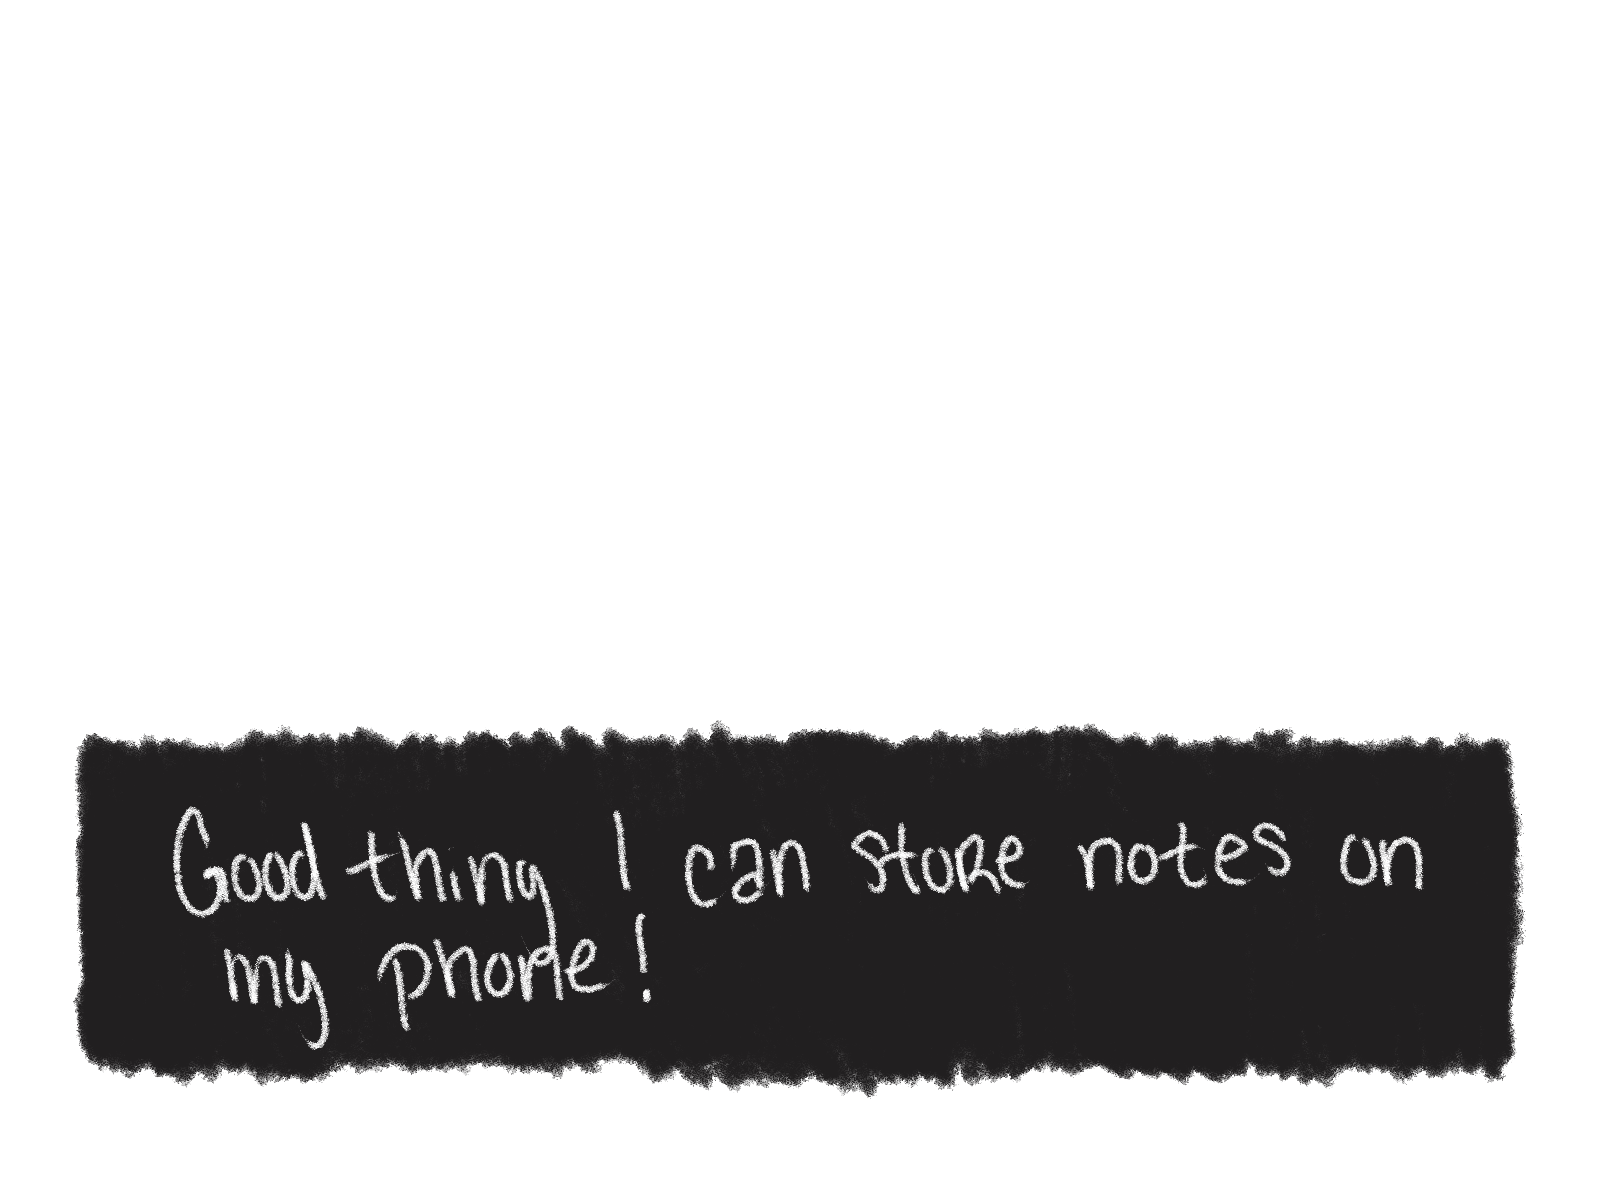 Good thing I can store notes on
my phone!